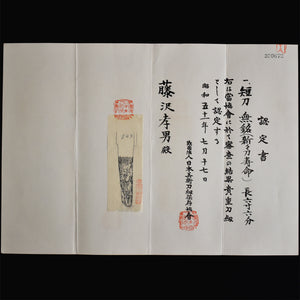 認定書
一、短刀 無銘(新々刀寿命) 長六寸六分
右は當協會に於て審査の結果貴重刀剣
として認定する
昭和五十一年七月十七日
財団法人日本美術刀剣保存協會
藤沢孝男殿